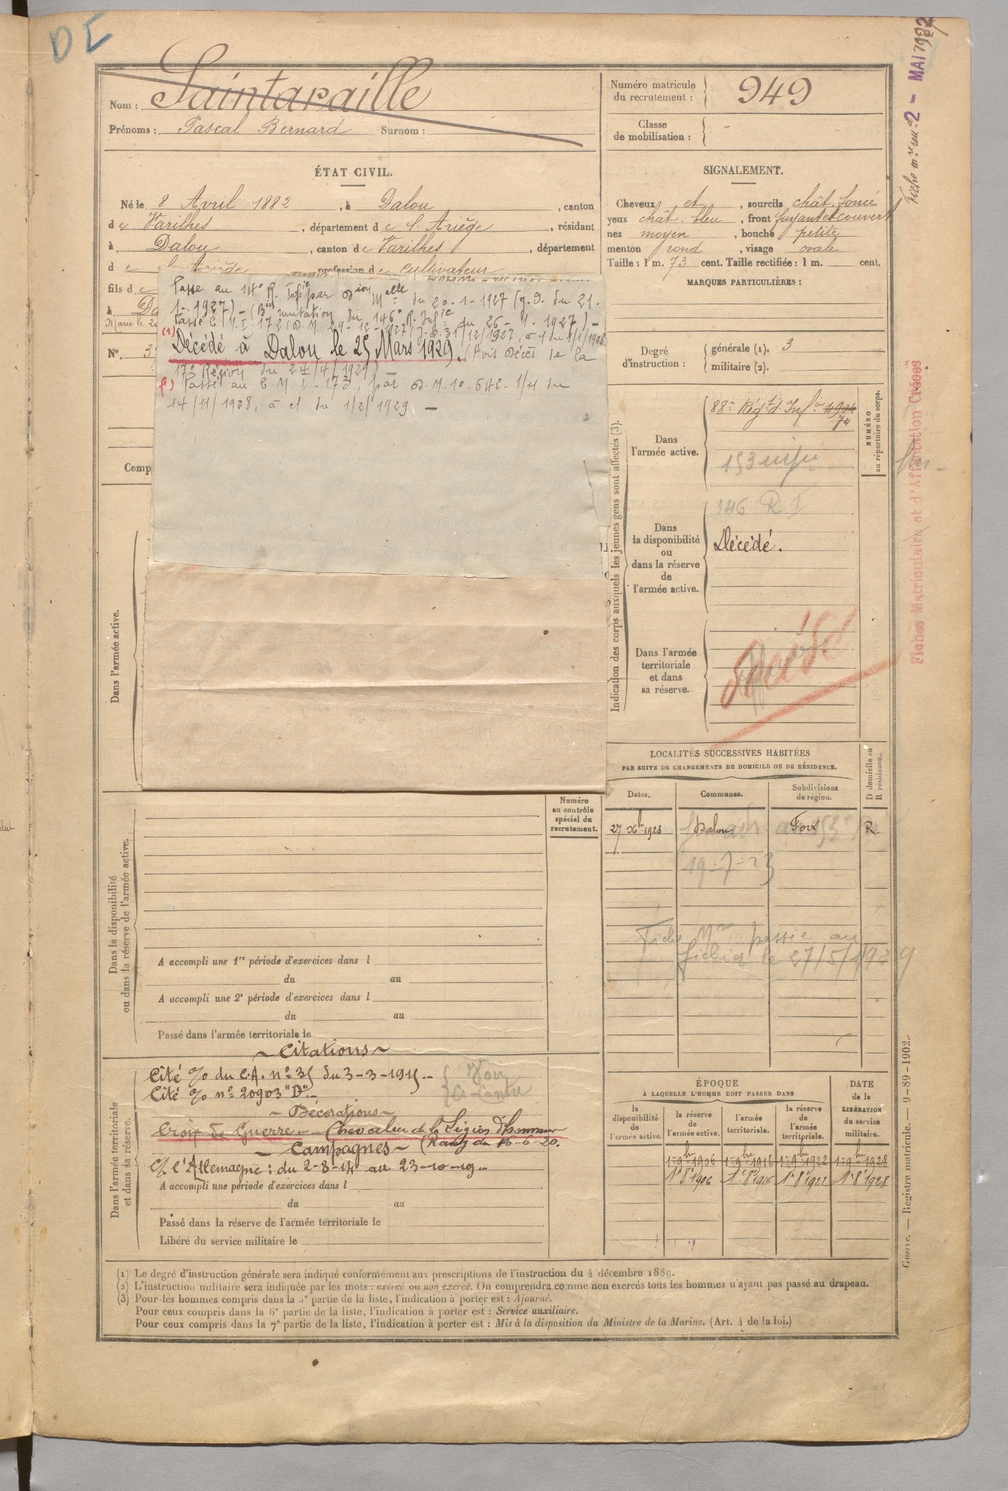 DC
Nom : Saintaraille
Prénoms : Pascal Bernard Surnom :
Numéro matricule du recrutement : 949
Classe de mobilisation : -
MAI 1992
ÉTAT CIVIL.
Né le 8 Avril 1882, à Dalou, canton
de Varilhes, département de l'Ariège, résidant
à Dalou, canton de Varilhes, département
d e l'Ariège profession de cultivateur
fils d e
à Da
SIGNALEMENT.
Cheveux et, sourcils chât. foncé
yeux chât. bleu, front fuyant et couvert
nez moyen, bouche petite
menton rond, visage ovale
Taille : 1 m. 73 cent. Taille rectifiée : 1 m. cent.
MARQUES PARTICULIÈRES :
Passé au 14e R. Infie par Don Mlle du 20-1-1927 (J.O. du 21-
1-1927) - (Bin mutation du 146e R. Infie du 26-4-1927) -
(1) Décédé à Dalou le 25 Mars 1929. (Avis Décès de la
17e Région du 24/4/1929)
(1) Passé au C. M. I. 173, par D.M. 10.642-1/4 du
14/11/1928, à ct du 1/2/1929 -
N°. 3
Comp
Degré d'instruction : générale (1). 3
militaire (2).
Indication des corps auxquels les jeunes gens sont affectés (3).
Dans l'armée active.
88e Régt d'Infie
153 infie
NUMÉRO au répertoire du corps.
Dans la disponibilité ou dans la réserve de l'armée active.
146 R I
Décédé.
Dans l'armée territoriale et dans sa réserve.
Décédé
Fiches Matriculaire et d'Affectation Créées
Dans l'armée active.
LOCALITÉS SUCCESSIVES HABITÉES
PAR SUITE DE CHANGEMENTS DE DOMICILE OU DE RÉSIDENCE.
Dates. Communes. Subdivisions de région. D domicile ou R résidence.
27 Xbre 1923 Dalou Foix R
19-7-23
Fiche Mle passée au
fichier le 27/5/1929
Numéro au contrôle spécial du recrutement.
Dans la disponibilité ou dans la réserve de l'armée active.
A accompli une 1re période d'exercices dans l
du au
A accompli une 2e période d'exercices dans l
du au
Passé dans l'armée territoriale le
Dans l'armée territoriale et dans sa réserve.
~ Citations ~
Cité o/o du C.A. n° 35 du 3-3-1915 -
Cité o/o n° 20903 "D" -
~ Décorations ~
Croix de Guerre - Chevalier de la Légion d'honneur
(Rang du 16-6-20.
~ Campagnes ~
C/ l'Allemagne : du 2-8-14 au 23-10-19 -
A accompli une période d'exercices dans l
du au
Passé dans la réserve de l'armée territoriale le
Libéré du service militaire le
ÉPOQUE
À LAQUELLE L'HOMME DOIT PASSER DANS
DATE de la LIBÉRATION du service militaire.
la disponibilité de l'armée active. la réserve de l'armée active. l'armée territoriale. la réserve de l'armée territoriale.
1-9bre 1906 1-9bre 1916 1-9bre 1922 1-9bre 1928
1er 8bre 1906 1er 8bre 1916 1er 8bre 1922 1er 8bre 1928
Guerre. — Registre matricule. — 9-89-1902.
(1) Le degré d'instruction générale sera indiqué conformément aux prescriptions de l'instruction du 4 décembre 1889.
(2) L'instruction militaire sera indiquée par les mots : exercé ou non exercé. On comprendra comme non exercés tous les hommes n'ayant pas passé au drapeau.
(3) Pour les hommes compris dans la 2e partie de la liste, l'indication à porter est : Ajourné.
Pour ceux compris dans la 6e partie de la liste, l'indication à porter est : Service auxiliaire.
Pour ceux compris dans la 7e partie de la liste, l'indication à porter est : Mis à la disposition du Ministre de la Marine. (Art. 4 de la loi.)